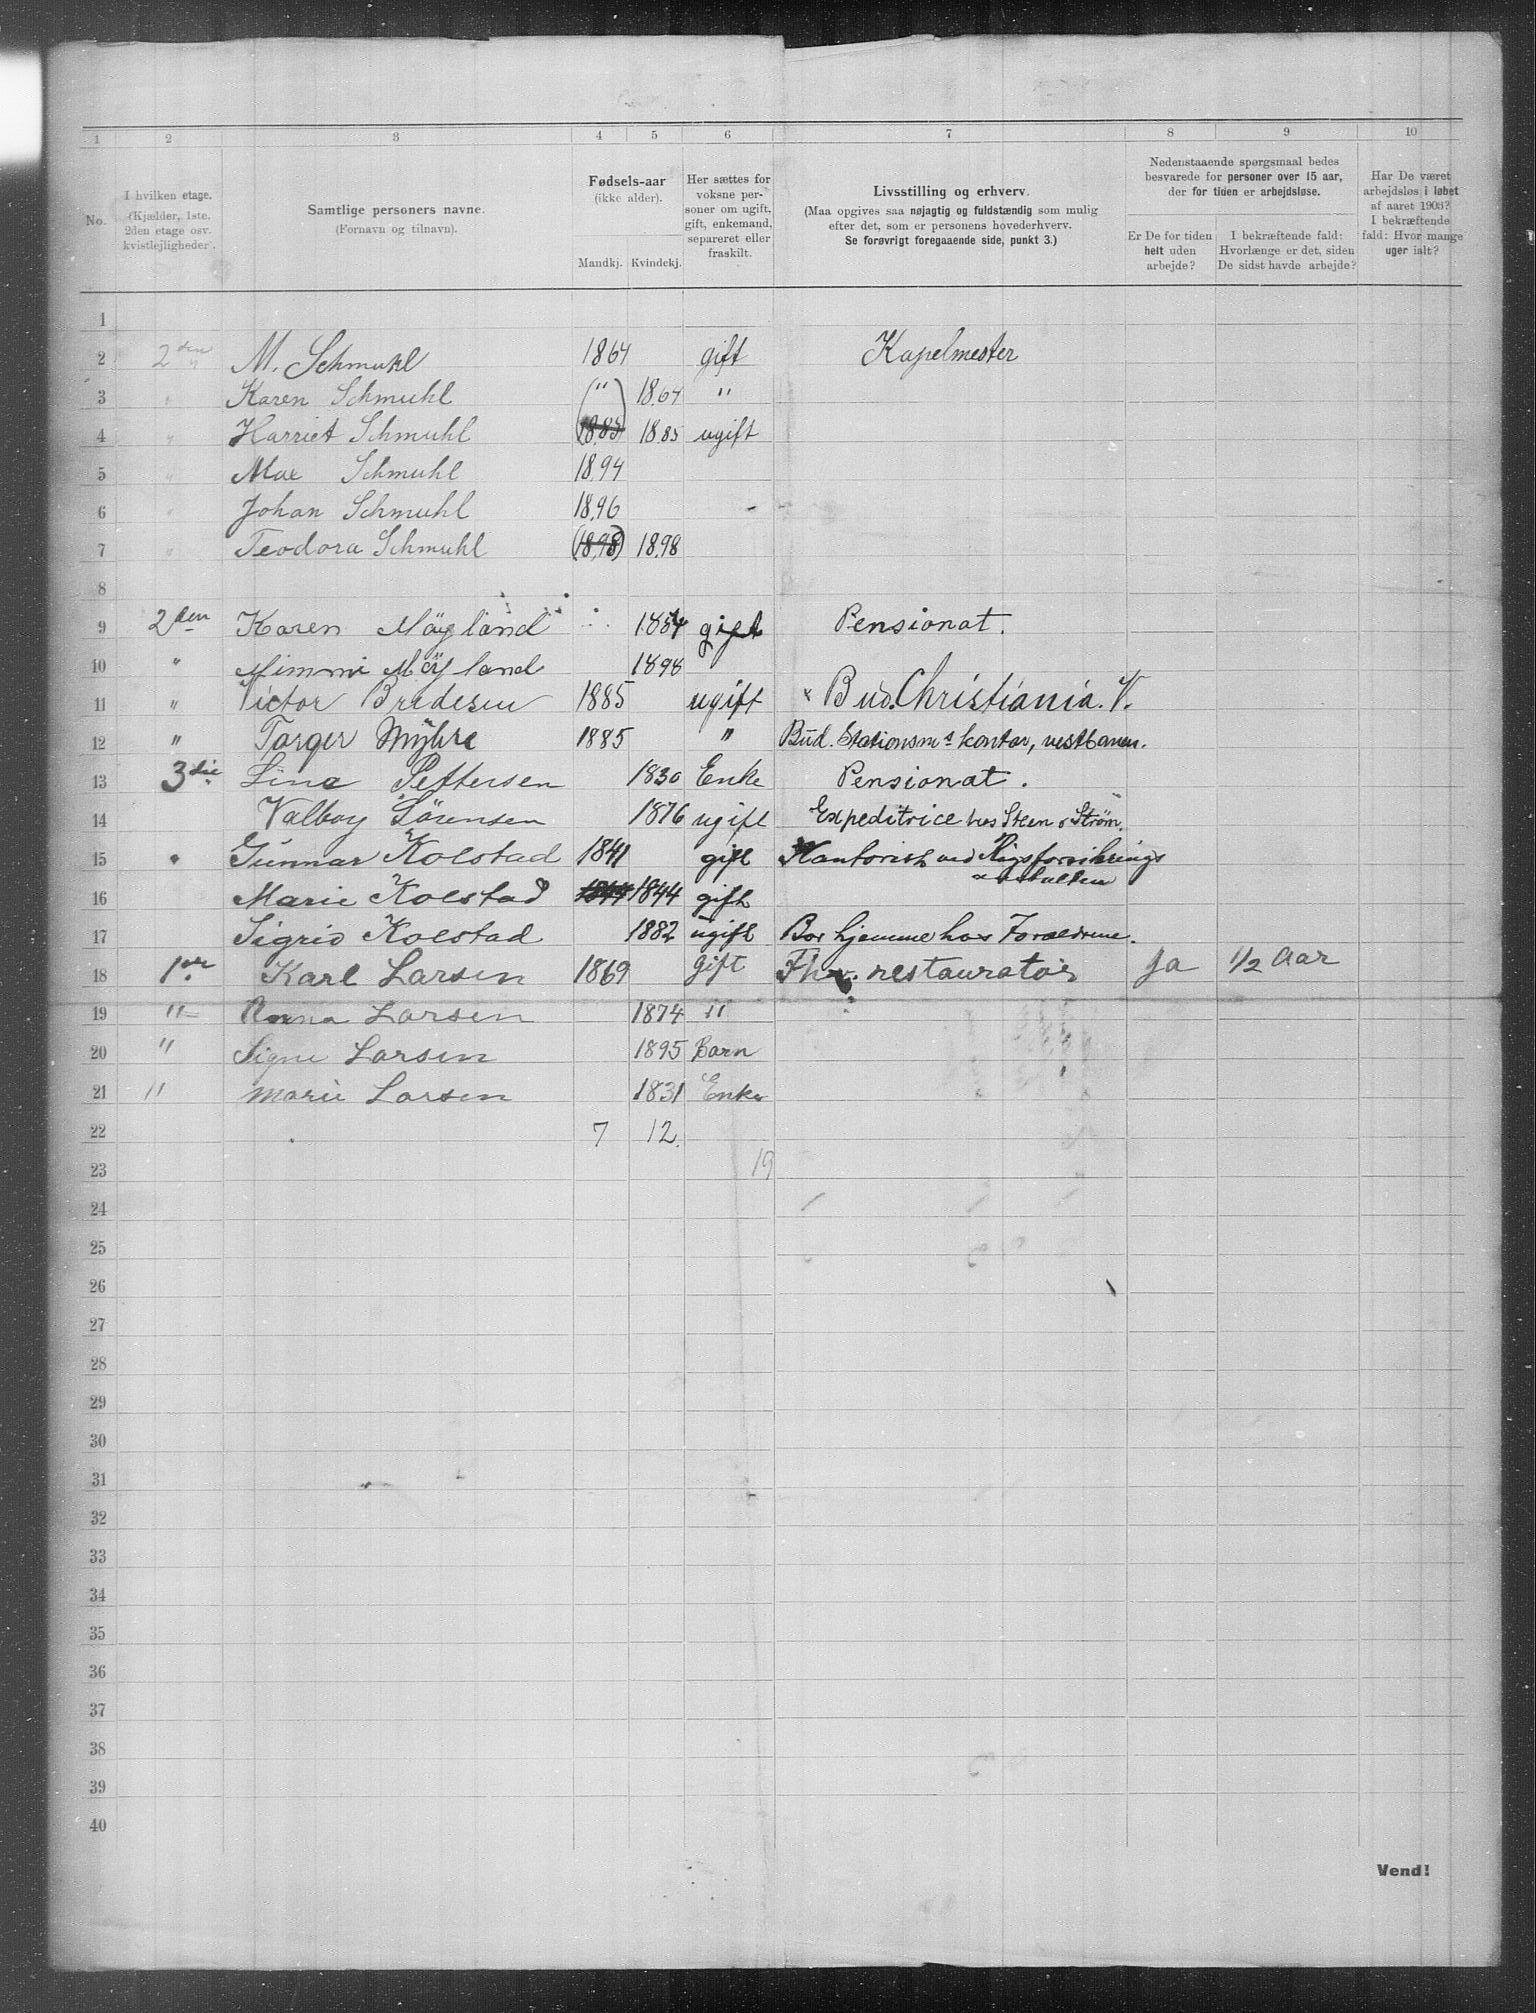 1 2 3 4 5 6 7 8 9 10
No.
I hvilken etage. (Kjælder, 1ste, 2den etage osv. kvistlejligheder).
Samtlige personers navne. (Fornavn og tilnavn).
Fødsels-aar (ikke alder). Mandkj. Kvindekj.
Her sættes for voksne personer om ugift, gift, enkemand, separeret eller fraskilt.
Livsstilling og erhverv.
(Maa opgives saa nøjagtig og fuldstændig som mulig efter det, som er personens hovederhverv.
Se forøvrigt foregaaende side, punkt 3.)
Nedenstaaende spørgsmaal bedes besvarede for personer over 15 aar, der for tiden er arbejdsløse.
Er De for tiden helt uden arbejde?
I bekræftende fald: Hvorlænge er det, siden De sidst havde arbejde?
Har De været arbejdsløs i løbet af aaret 1903? I bekræftende fald: Hvor mange uger ialt?
1
2 2den M. Schmuhl 1864 gift Kapelmester
3 " Karen Schmuhl " 1864 "
4 " Harriet Schmuhl (1885) 1885 ugift
5 " Max Schmuhl 1894
6 " Johan Schmuhl 1896
7 " Teodora Schmuhl (1898) 1898
8
9 2den Karen Møyland 1854 gift Pensionat.
10 " Mimmi Møyland 1898
11 " Victor Bredesen 1885 ugift × Bud. Christiania. V.
12 " Torger Myhre 1885 " Bud. Stationsms kontor, vestbanen.
13 3die Line Pettersen 1830 Enke Pensionat.
14 Valborg Sørensen 1876 ugift Expeditrice hos Steen & Strøm.
15 " Gunnar Kolstad 1841 gift Kontorist ved Rigsforsikrings
anstalten
16 Marie Kolstad 1844 1844 gift
17 Sigrid Kolstad 1882 ugift Bor hjemme hos Foraeldrene.
18 1ste Karl Larsen 1869 gift Fhv. restauratør Ja 1/2 Aar
19 " Anna Larsen 1874 "
20 " Signe Larsen 1895 Barn
21 " Marie Larsen 1831 Enke
22 7 12.
23 19
24
25
26
27
28
29
30
31
32
33
34
35
36
37
38
39
40
Vend!